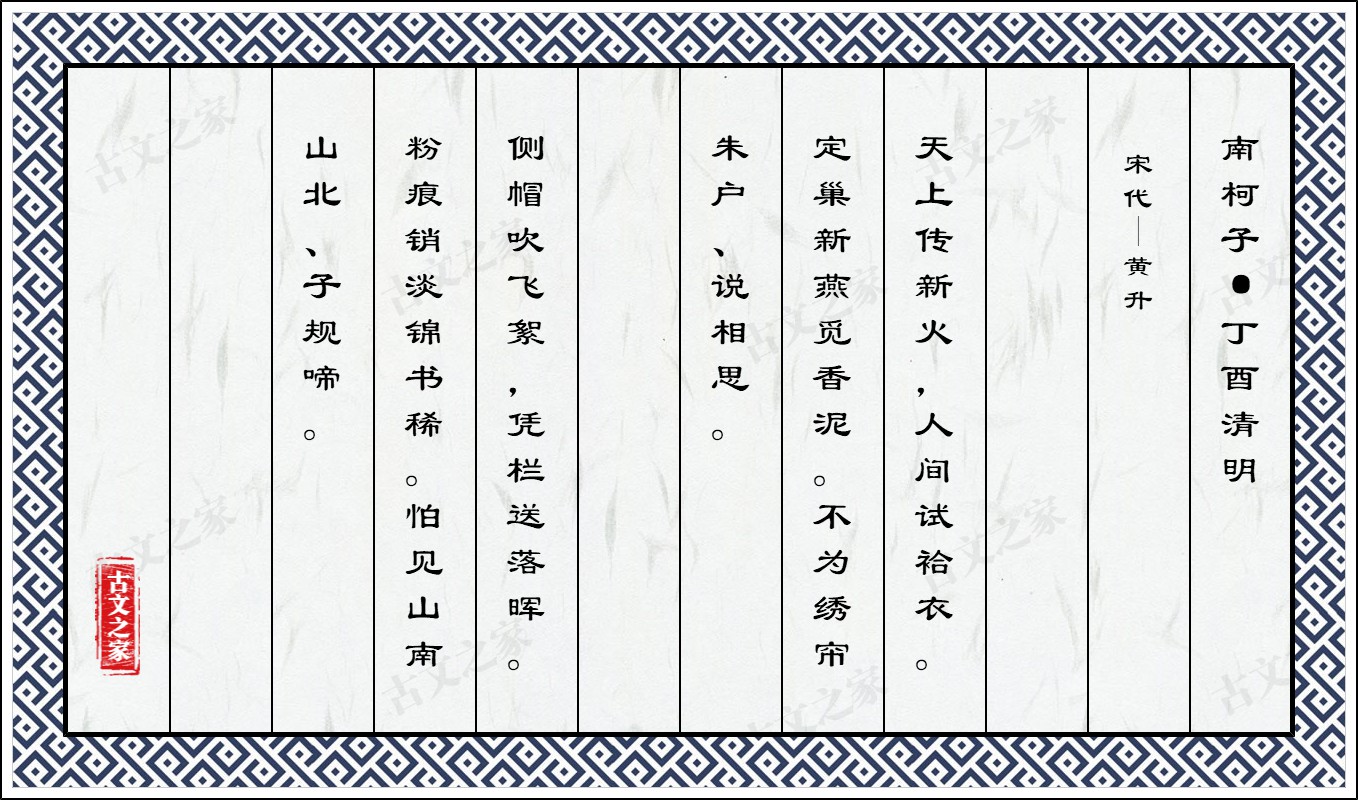 南柯子●丁酉清明
宋代—黄升
天上传新火，人间试袷衣。
定巢新燕觅香泥。不为绣帘
朱户、说相思。
侧帽吹飞絮，凭栏送落晖。
粉痕销淡锦书稀。怕见山南
山北、子规啼。
古文之家